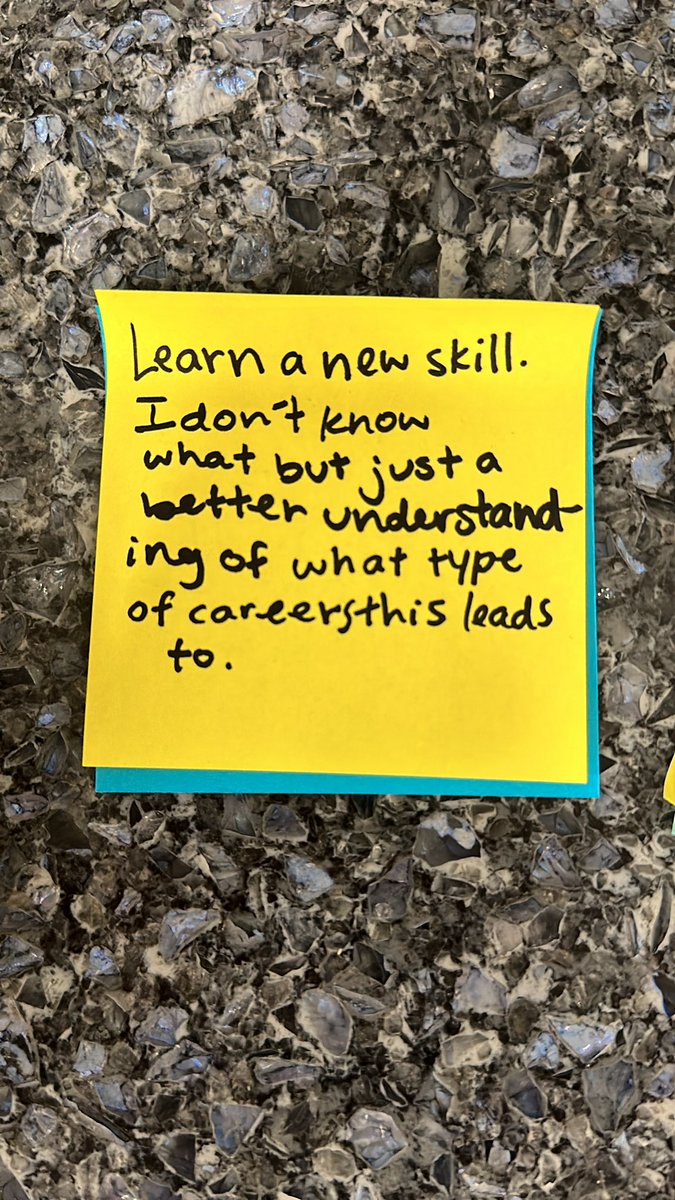 Learn a new skill.
I don't know
what but just a
better understand-
ing of what type
of careers this leads
to.